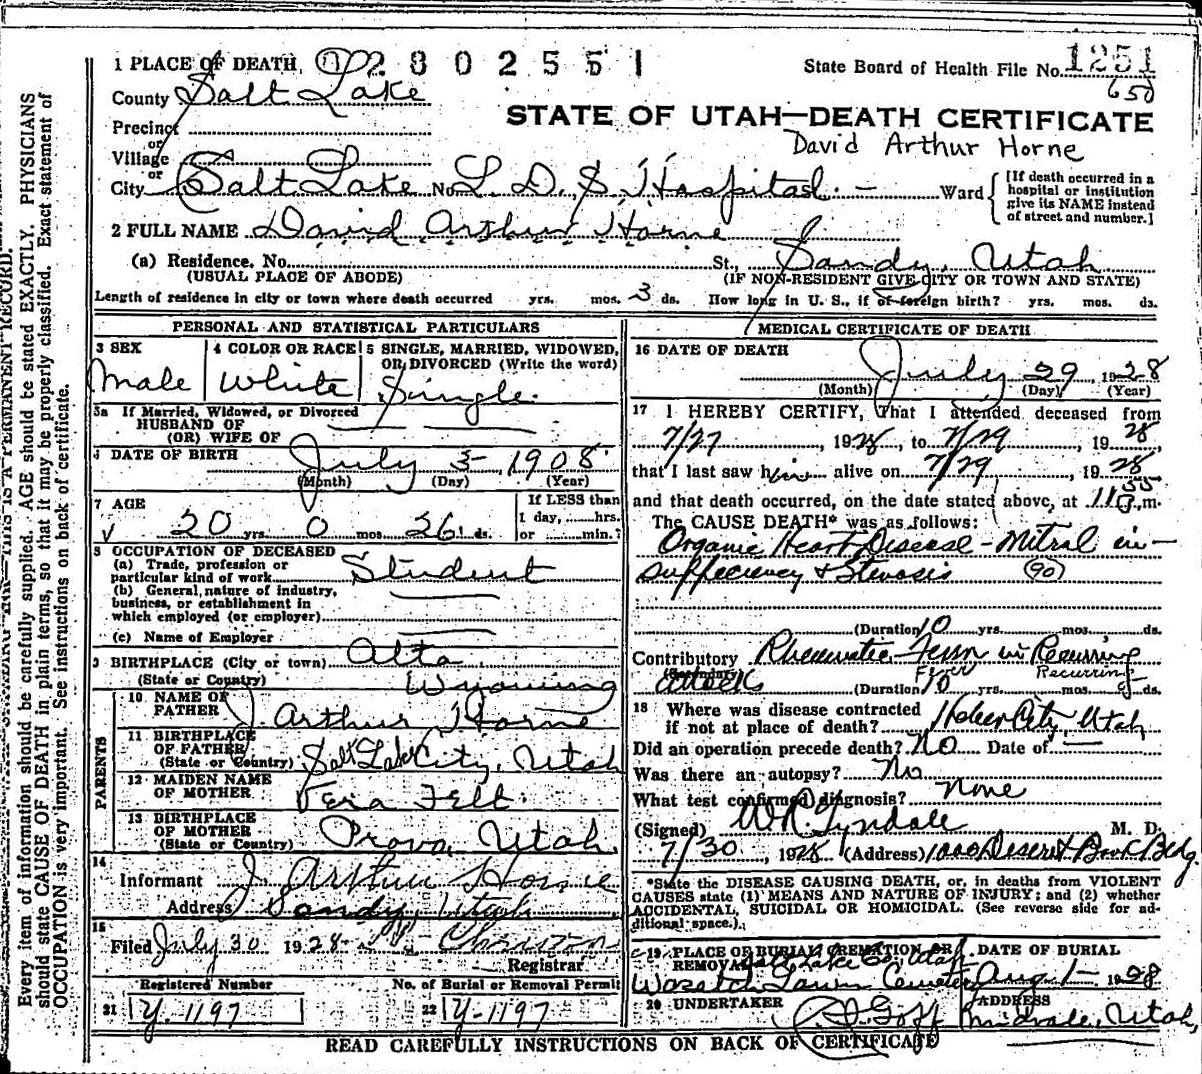 1 PLACE OF DEATH 2802551
State Board of Health File No. 1251
650
County Salt Lake
STATE OF UTAH—DEATH CERTIFICATE
Precinct
David Arthur Horne
or
Village
or
City Salt Lake No. L. D. S. Hospital. — Ward
[If death occurred in a
hospital or institution
give its NAME instead
of street and number.]
2 FULL NAME David Arthur Horne
(a) Residence. No. St., Sandy, Utah
(USUAL PLACE OF ABODE) (IF NON-RESIDENT GIVE CITY OR TOWN AND STATE)
Length of residence in city or town where death occurred yrs. mos. 3 ds. How long in U. S., if of foreign birth? yrs. mos. ds.
PERSONAL AND STATISTICAL PARTICULARS
3 SEX
Male
4 COLOR OR RACE
White
5 SINGLE, MARRIED, WIDOWED,
OR DIVORCED (Write the word)
Single.
5a If Married, Widowed, or Divorced
HUSBAND OF
(OR) WIFE OF
6 DATE OF BIRTH July 3 1908
(Month) (Day) (Year)
7 AGE
20 yrs. 0 mos. 26 ds.
If LESS than
1 day, ......hrs.
or ......min.?
8 OCCUPATION OF DECEASED
(a) Trade, profession or
particular kind of work Student
(b) General nature of industry,
business, or establishment in
which employed (or employer)
(c) Name of Employer
9 BIRTHPLACE (City or town) Alta
(State or Country) Wyoming
PARENTS
10 NAME OF
FATHER J. Arthur Horne
11 BIRTHPLACE
OF FATHER
(State or Country) Salt Lake City, Utah
12 MAIDEN NAME
OF MOTHER Vera Felt.
13 BIRTHPLACE
OF MOTHER
(State or Country) Provo, Utah
14
Informant J. Arthur Horne
Address Sandy, Utah
15
Filed July 30 1928
Registrar
Registered Number
21 Y-1197
No. of Burial or Removal Permit
22 Y-1197
MEDICAL CERTIFICATE OF DEATH
16 DATE OF DEATH
July 29 1928
(Month) (Day) (Year)
17 I HEREBY CERTIFY, That I attended deceased from
7/27, 1928, to 7/29, 1928
that I last saw him alive on 7/29, 1928
and that death occurred, on the date stated above, at 11 55 P.m.
The CAUSE DEATH* was as follows:
Organic Heart Disease - Mitral in-
sufficiency & Stenosis (90)
(Duration) 10 yrs. mos. ds.
Contributory Rheumatic Fever in Recurring
Fever Recurring
(Secondary) attacks (Duration) 10 yrs. mos. ds.
18 Where was disease contracted
if not at place of death? Heber City, Utah
Did an operation precede death? No Date of —
Was there an autopsy? No
What test confirmed diagnosis? None
(Signed) W R Tyndale M. D.
7/30, 1928 (Address) 1000 Deseret Bank Bldg
*State the DISEASE CAUSING DEATH, or, in deaths from VIOLENT
CAUSES state (1) MEANS AND NATURE OF INJURY; and (2) whether
ACCIDENTAL, SUICIDAL OR HOMICIDAL. (See reverse side for ad-
ditional space.)
19 PLACE OF BURIAL CREMATION OR
REMOVAL Salt Lake Co. Utah
Wasatch Lawn Cemetery
DATE OF BURIAL
Aug 1 1928
20 UNDERTAKER
Goff
ADDRESS
Midvale, Utah,
READ CAREFULLY INSTRUCTIONS ON BACK OF CERTIFICATE
THIS IS A PERMANENT RECORD.
Every item of information should be carefully supplied. AGE should be stated EXACTLY. PHYSICIANS
should state CAUSE OF DEATH in plain terms, so that it may be properly classified. Exact statement of
OCCUPATION is very important. See instructions on back of certificate.